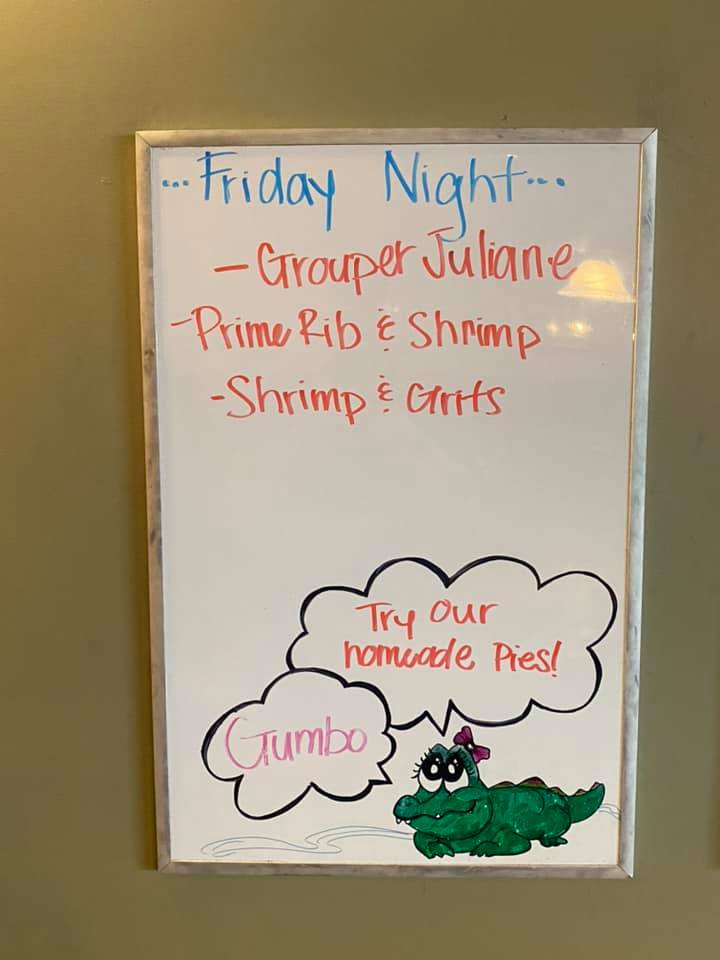 ... Friday Night ...
- Grouper Juliane
- Prime Rib & Shrimp
- Shrimp & Grits
Try our
homeade Pies!
Gumbo